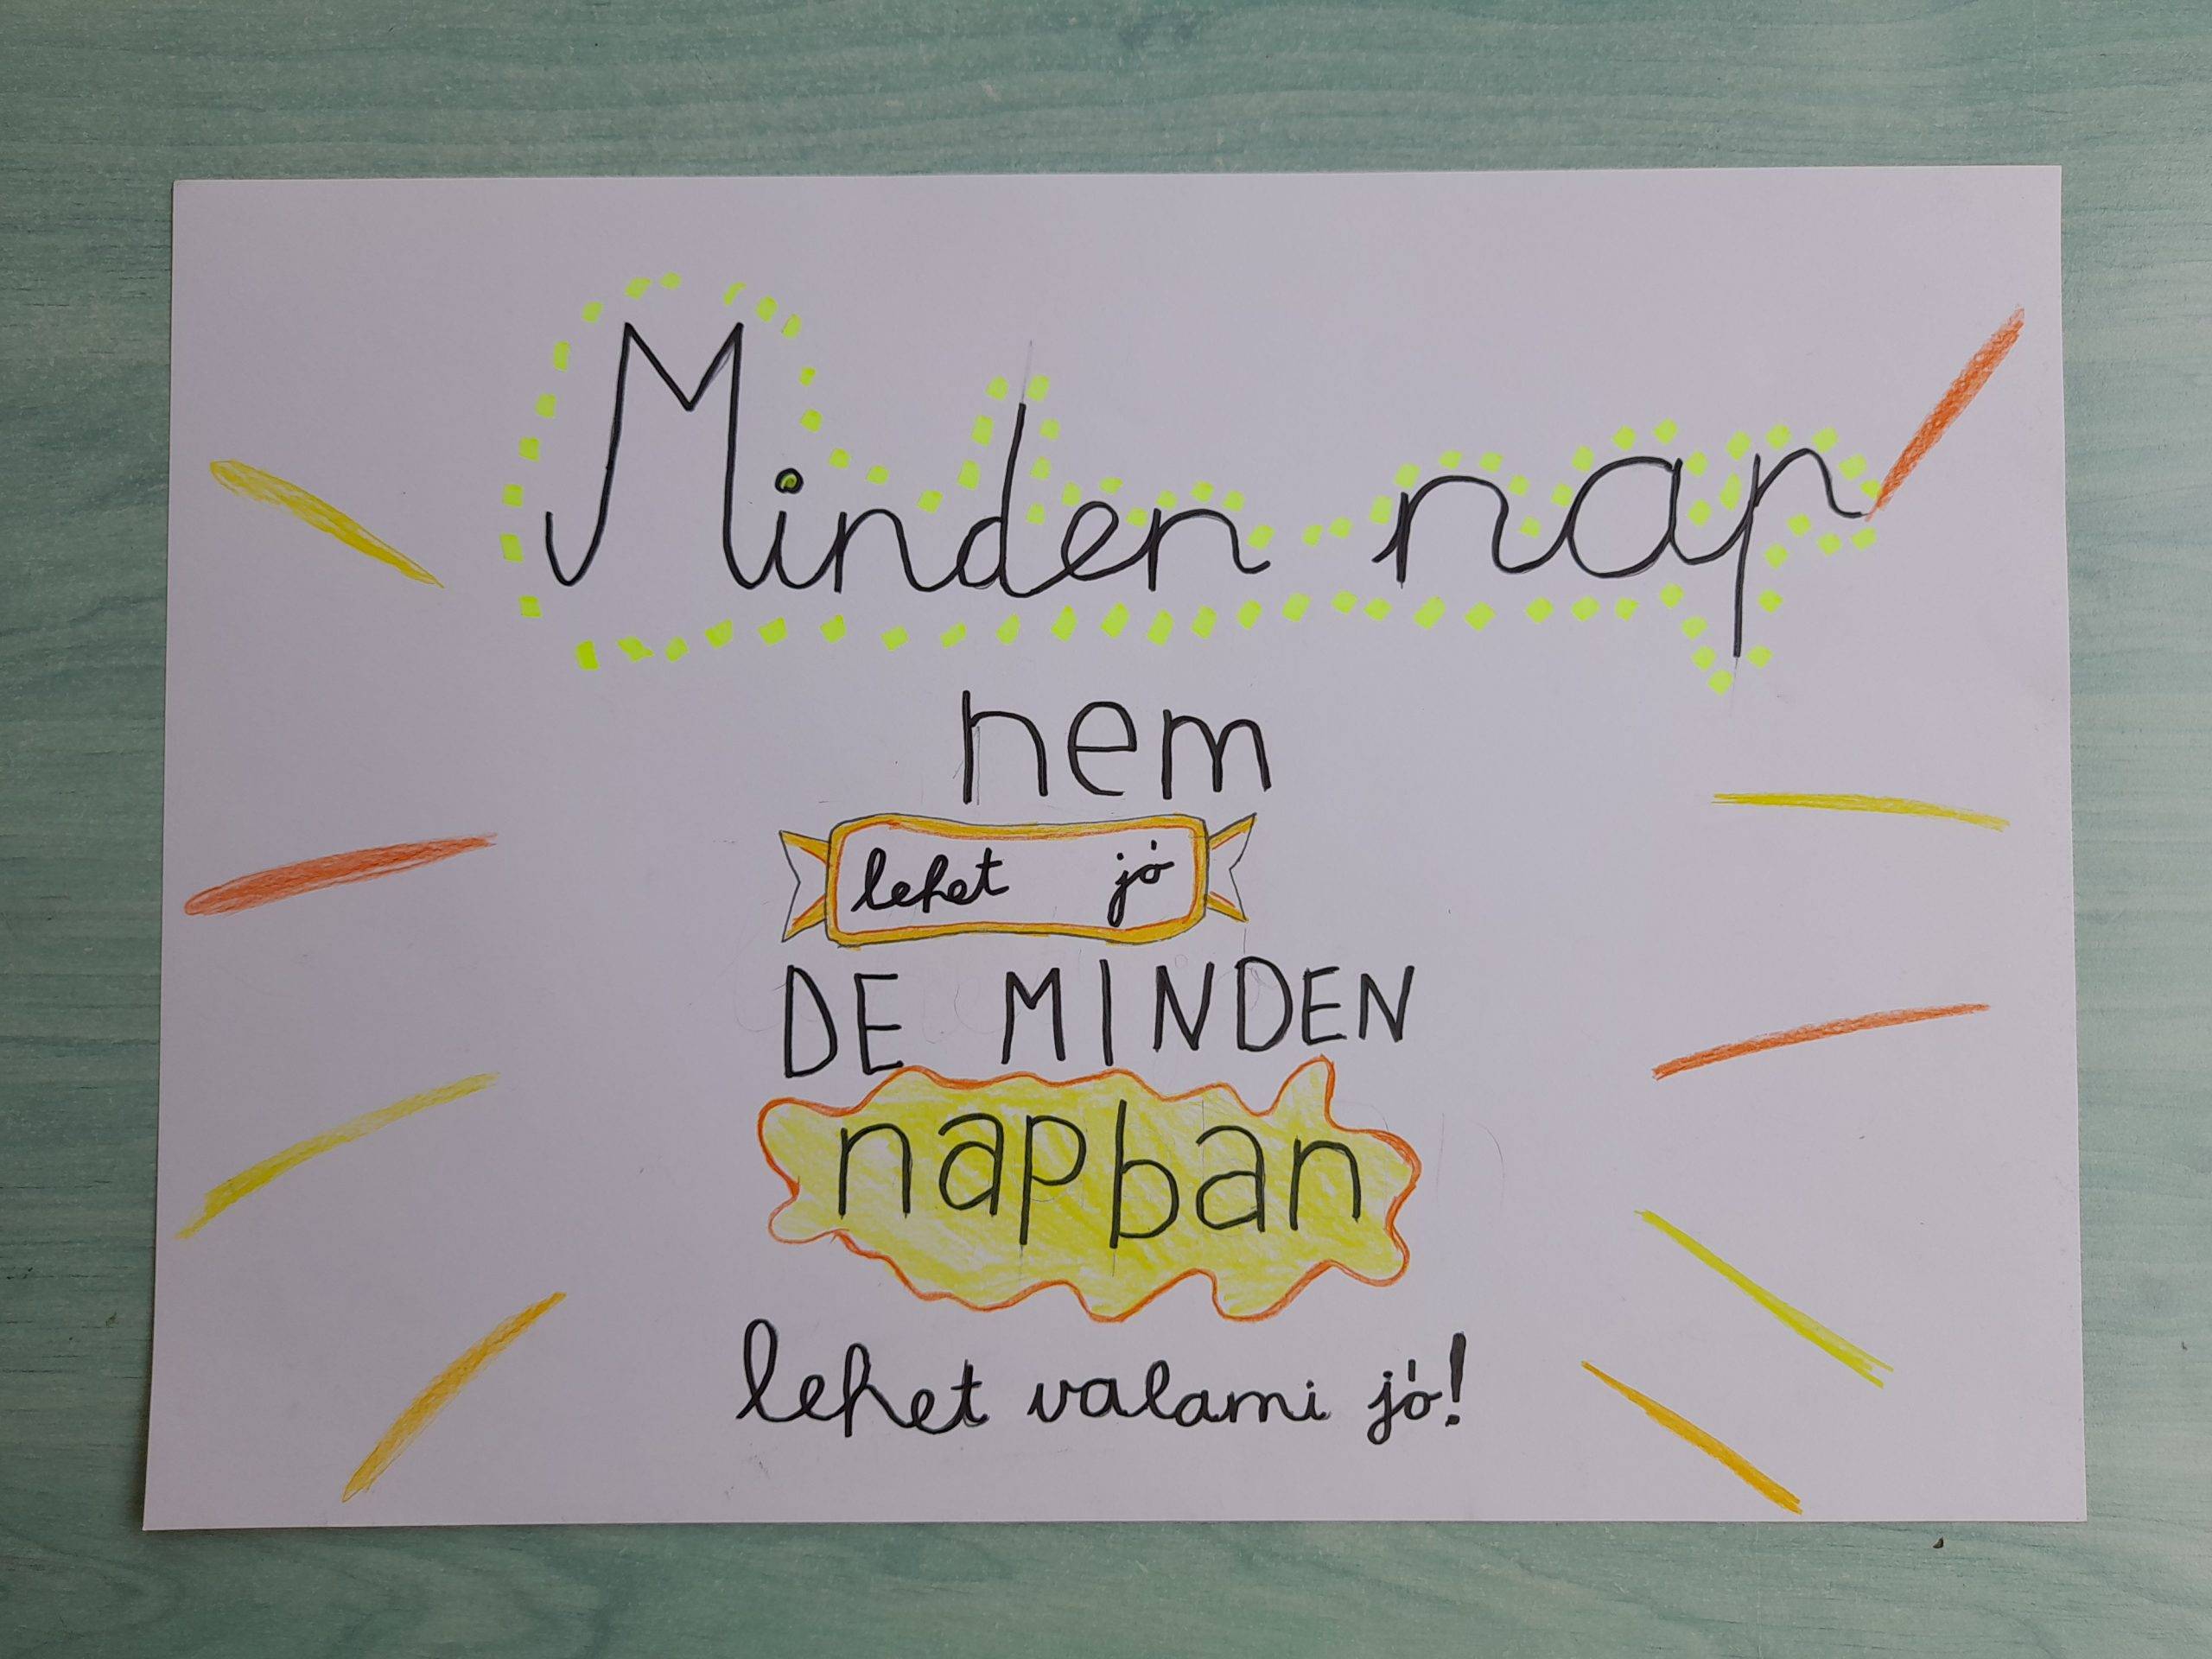 Minden nap
nem
lehet jó
DE MINDEN
napban
lehet valami jó!